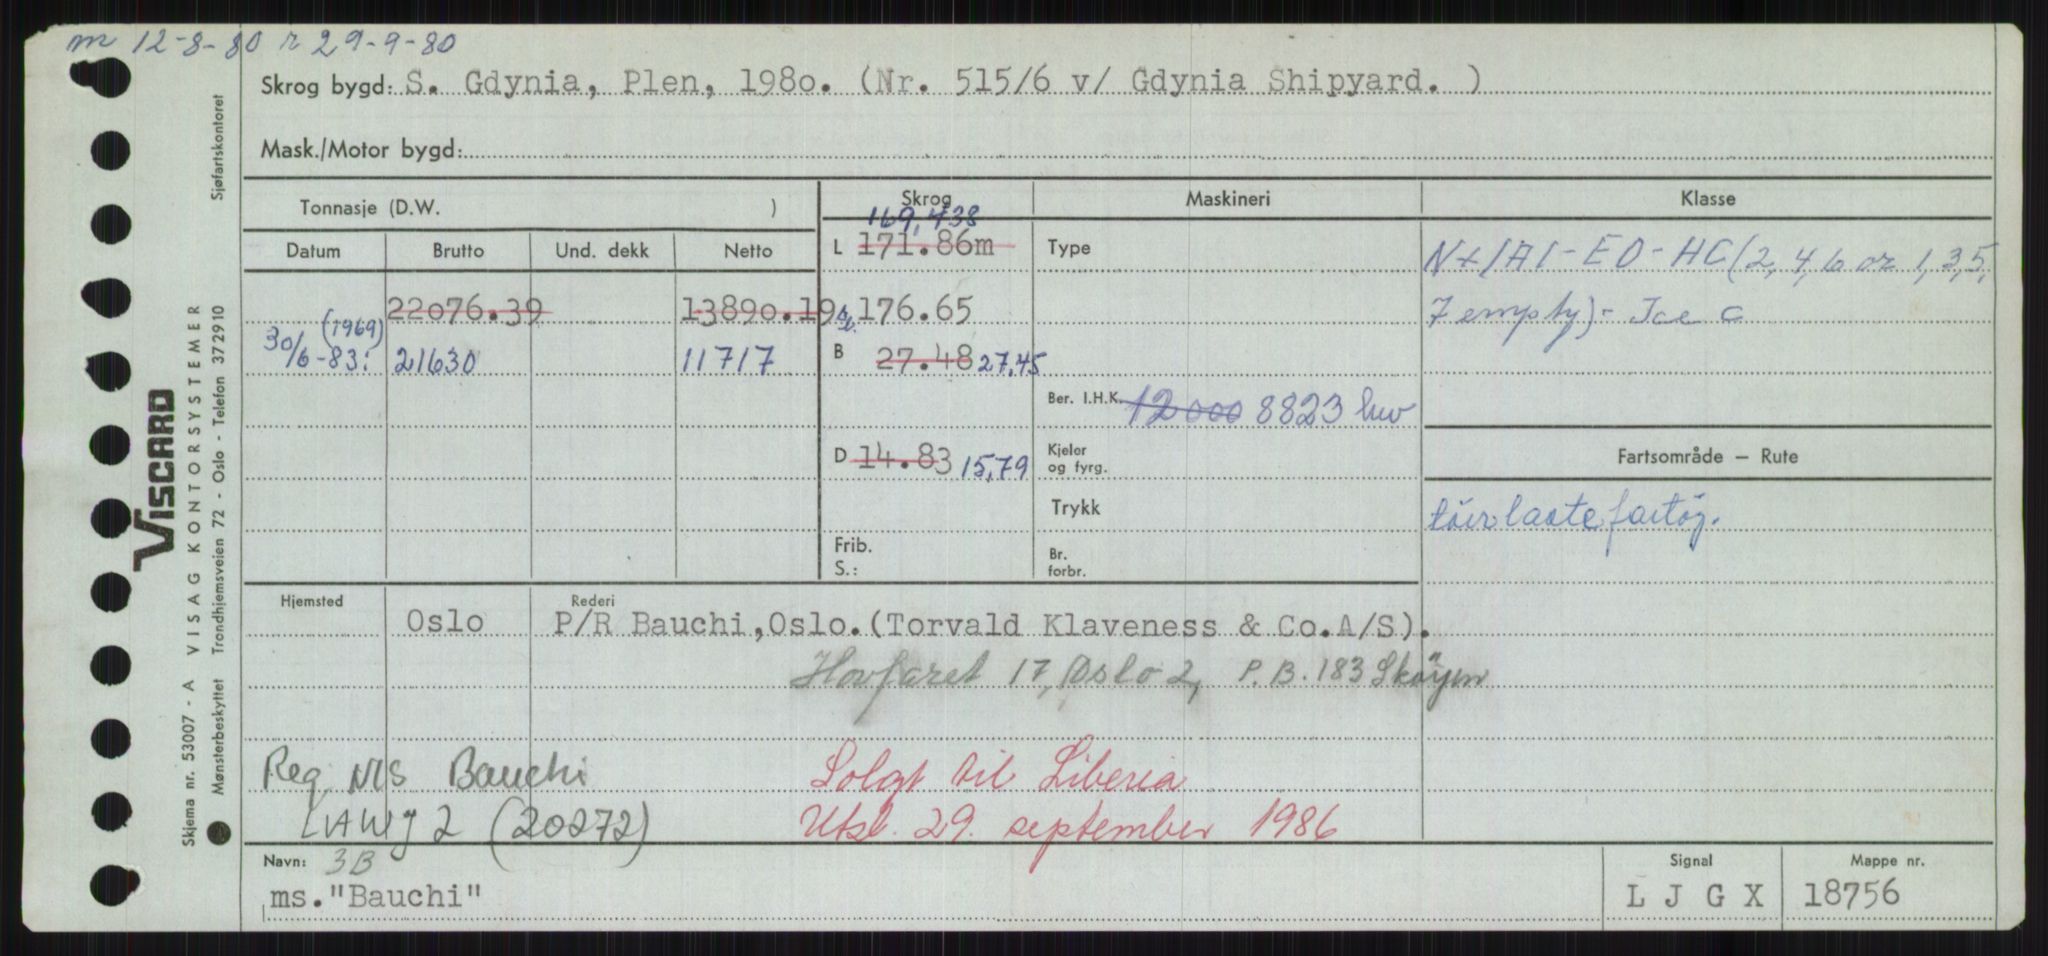 m 12-8-80 r 29-9-80
Skrog bygd: S. Gdynia, Plen, 1980. (Nr. 515/6 v/ Gdynia Shipyard. )
Mask./Motor bygd:
Tonnasje (D.W. )
Skrog
Maskineri
Klasse
Datum Brutto Und. dekk Netto
169,438
L 171.86m
Type
N+1A1-EO-HC(2,4,6 or 1,3,5,
22076.39 13890.19
176.65
7 empty)- Ice C
(1969)
30/6-83: 21630 11717
B 27.48 27,45
Ber. I.H.K. 12000 8823 kw
D 14.83 15,79
Kjeler
og fyrg.
Fartsområde — Rute
Trykk
tørrlastefartøy.
Frib.
S.:
Br.
forbr.
Hjemsted Rederi
Oslo P/R Bauchi,Oslo.(Torvald Klaveness & Co.A/S).
Hovfaret 17, Oslo 2, P.B. 183 Skøyen
Reg NIS Bauchi
Solgt til Liberia
LAWJ2 (20272)
Utsl. 29. september 1986
Navn: 3B
ms."Bauchi"
Signal
L J G X
Mappe nr.
18756
VISCARD
Skjema nr. 53007 - A VISAG KONTORSYSTEMER
Mønsterbeskyttet Trondhjemsveien 72 - Oslo - Telefon 372910 Sjøfartskontoret